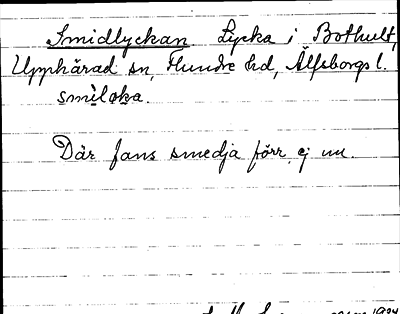 Smidlyckan Lycka i Bothult,
Upphärad sn, Flundre hd, Älfsborgs l.
smiloka.
Där fans smedja förr, ej nu.
1904